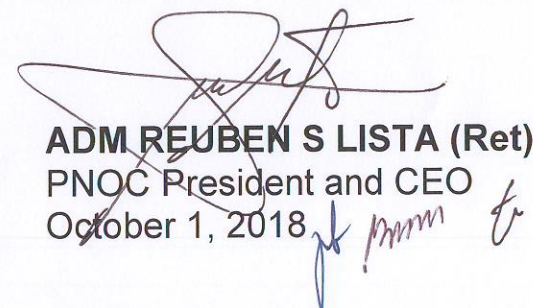 ADM REUBEN S LISTA (Ret)
PNOC President and CEO
October 1, 2018